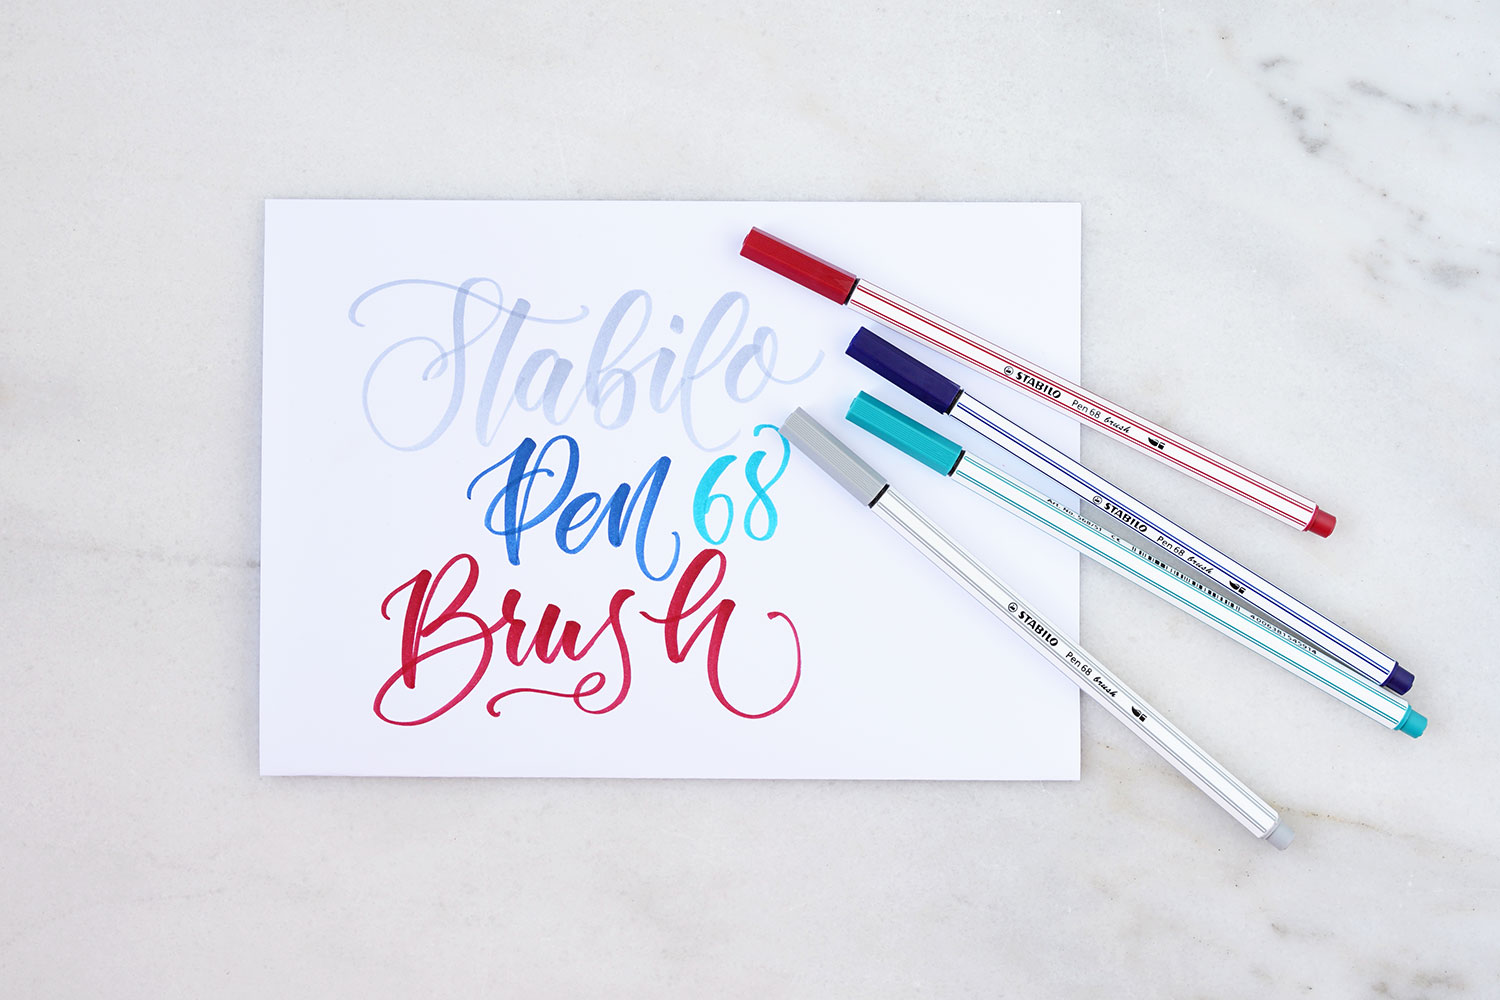 Stabilo
Pen 68
Brush
STABILO Pen 68 brush
STABILO Pen 68 brush
Art. No. 568/51 CE
STABILO Pen 68 brush